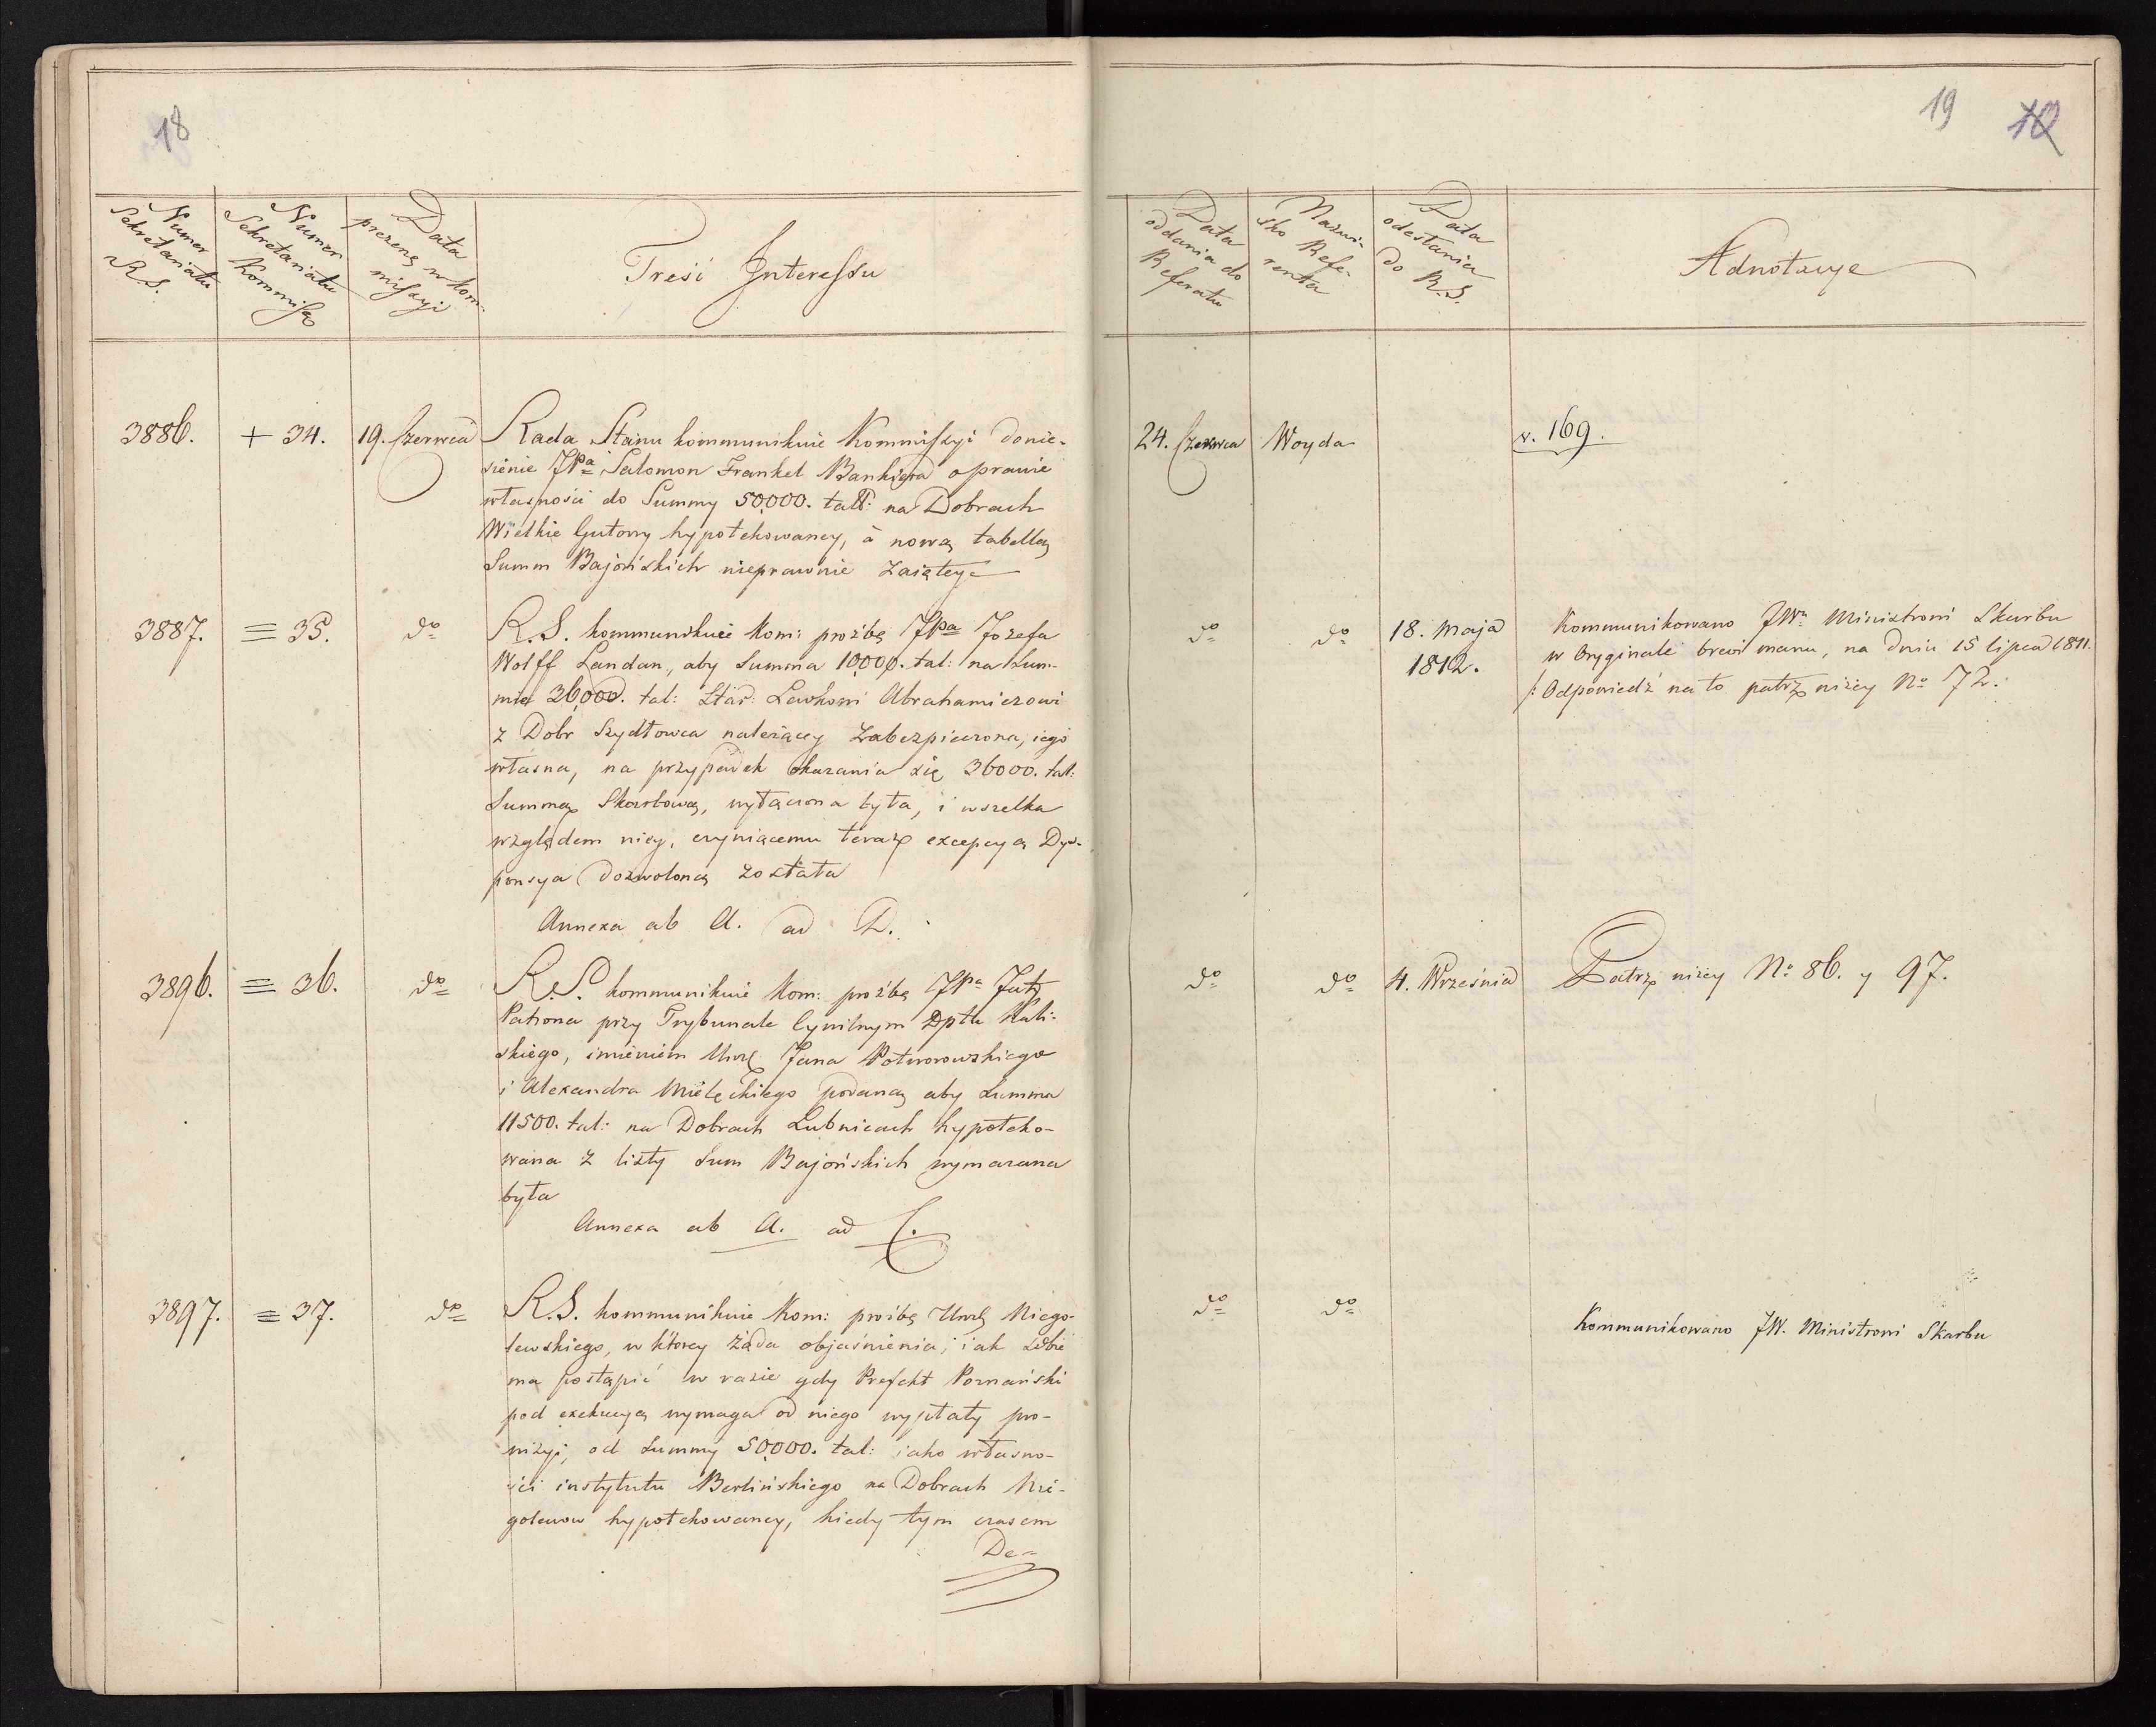 18
Numer Sekretariatu R. S.
Numer Sekretariatu Kommissyi
Data prezent: w Kommissyi
Treść Interessu
3886.
+ 34.
19. Czerwca
Rada Stanu kommunikuie Kommissyi donie-
sienie JPa Salomon Frankel Bankiera o prawie
własności do Summy 50,000. tall: na Dobrach
Wielkie Gutowy hypotekowaney, à nową tabellą
Summ Bajońskich nieprawnie zaiętey
3887.
= 35.
do
R. S. kommunikuie Kom: proźbę JPa Jozefa
Wolff Landau, aby Summa 10,000. tal: na Sum-
mie 36,000. tal: Star: Lewkowi Abrahamiczowi
z Dobr Szydłowca należącey zabezpieczona, iego
własna, na przypadek okazania się 36000. tal:
Summą Skarbową, wyłączona była, i wszelka
względem niey, czyniącemu teraz excepcyą Dys-
ponsya dozwoloną została
Annexa ab A. ad D.
3896.
= 36.
do
R. S. kommunikuie Kom: proźbę JPa Jutz
Patrona przy Trybunale Cywilnym Dptu Kali-
skiego, imieniem Urze Jana Potworowskiego
i Alexandra Mielęckiego podaną aby Summa
11500. tal: na Dobrach Lubnicach hypoteko-
wana z listy Sum Bajońskich wymazana
była
Annexa ab A. ad C.
3897.
= 37.
do
R. S. kommunikuie Kom: proźbę Urze Niego-
lewskiego, w ktorey żąda objaśnienia, iak sobie
ma postąpić w razie gdy Prefekt Poznański
pod exekucyą wymaga od niego wypłaty pro-
wizyi, od Summy 50,000. tal: iako własno-
ści instytutu Berlińskiego na Dobrach Nie-
golewow hypotekowaney, kiedy tym czasem
De-
19 10
Data oddania do Referatu
Nazwi-sko Refe-renta
Data odesłania do R. S.
Adnotacye
24. Czerwca
Woyda
v. 169.
do
do
18. Maja
1812.
Kommunikowano JWu Ministrowi Skarbu
w Oryginale brevi manu, na dniu 15 lipca 1811.
/: Odpowiedź na to patrz niżey No 72.
do
do
4. Września
Patrz niżey No 86. y 97.
do
do
Kommunikowano JW. Ministrowi Skarbu